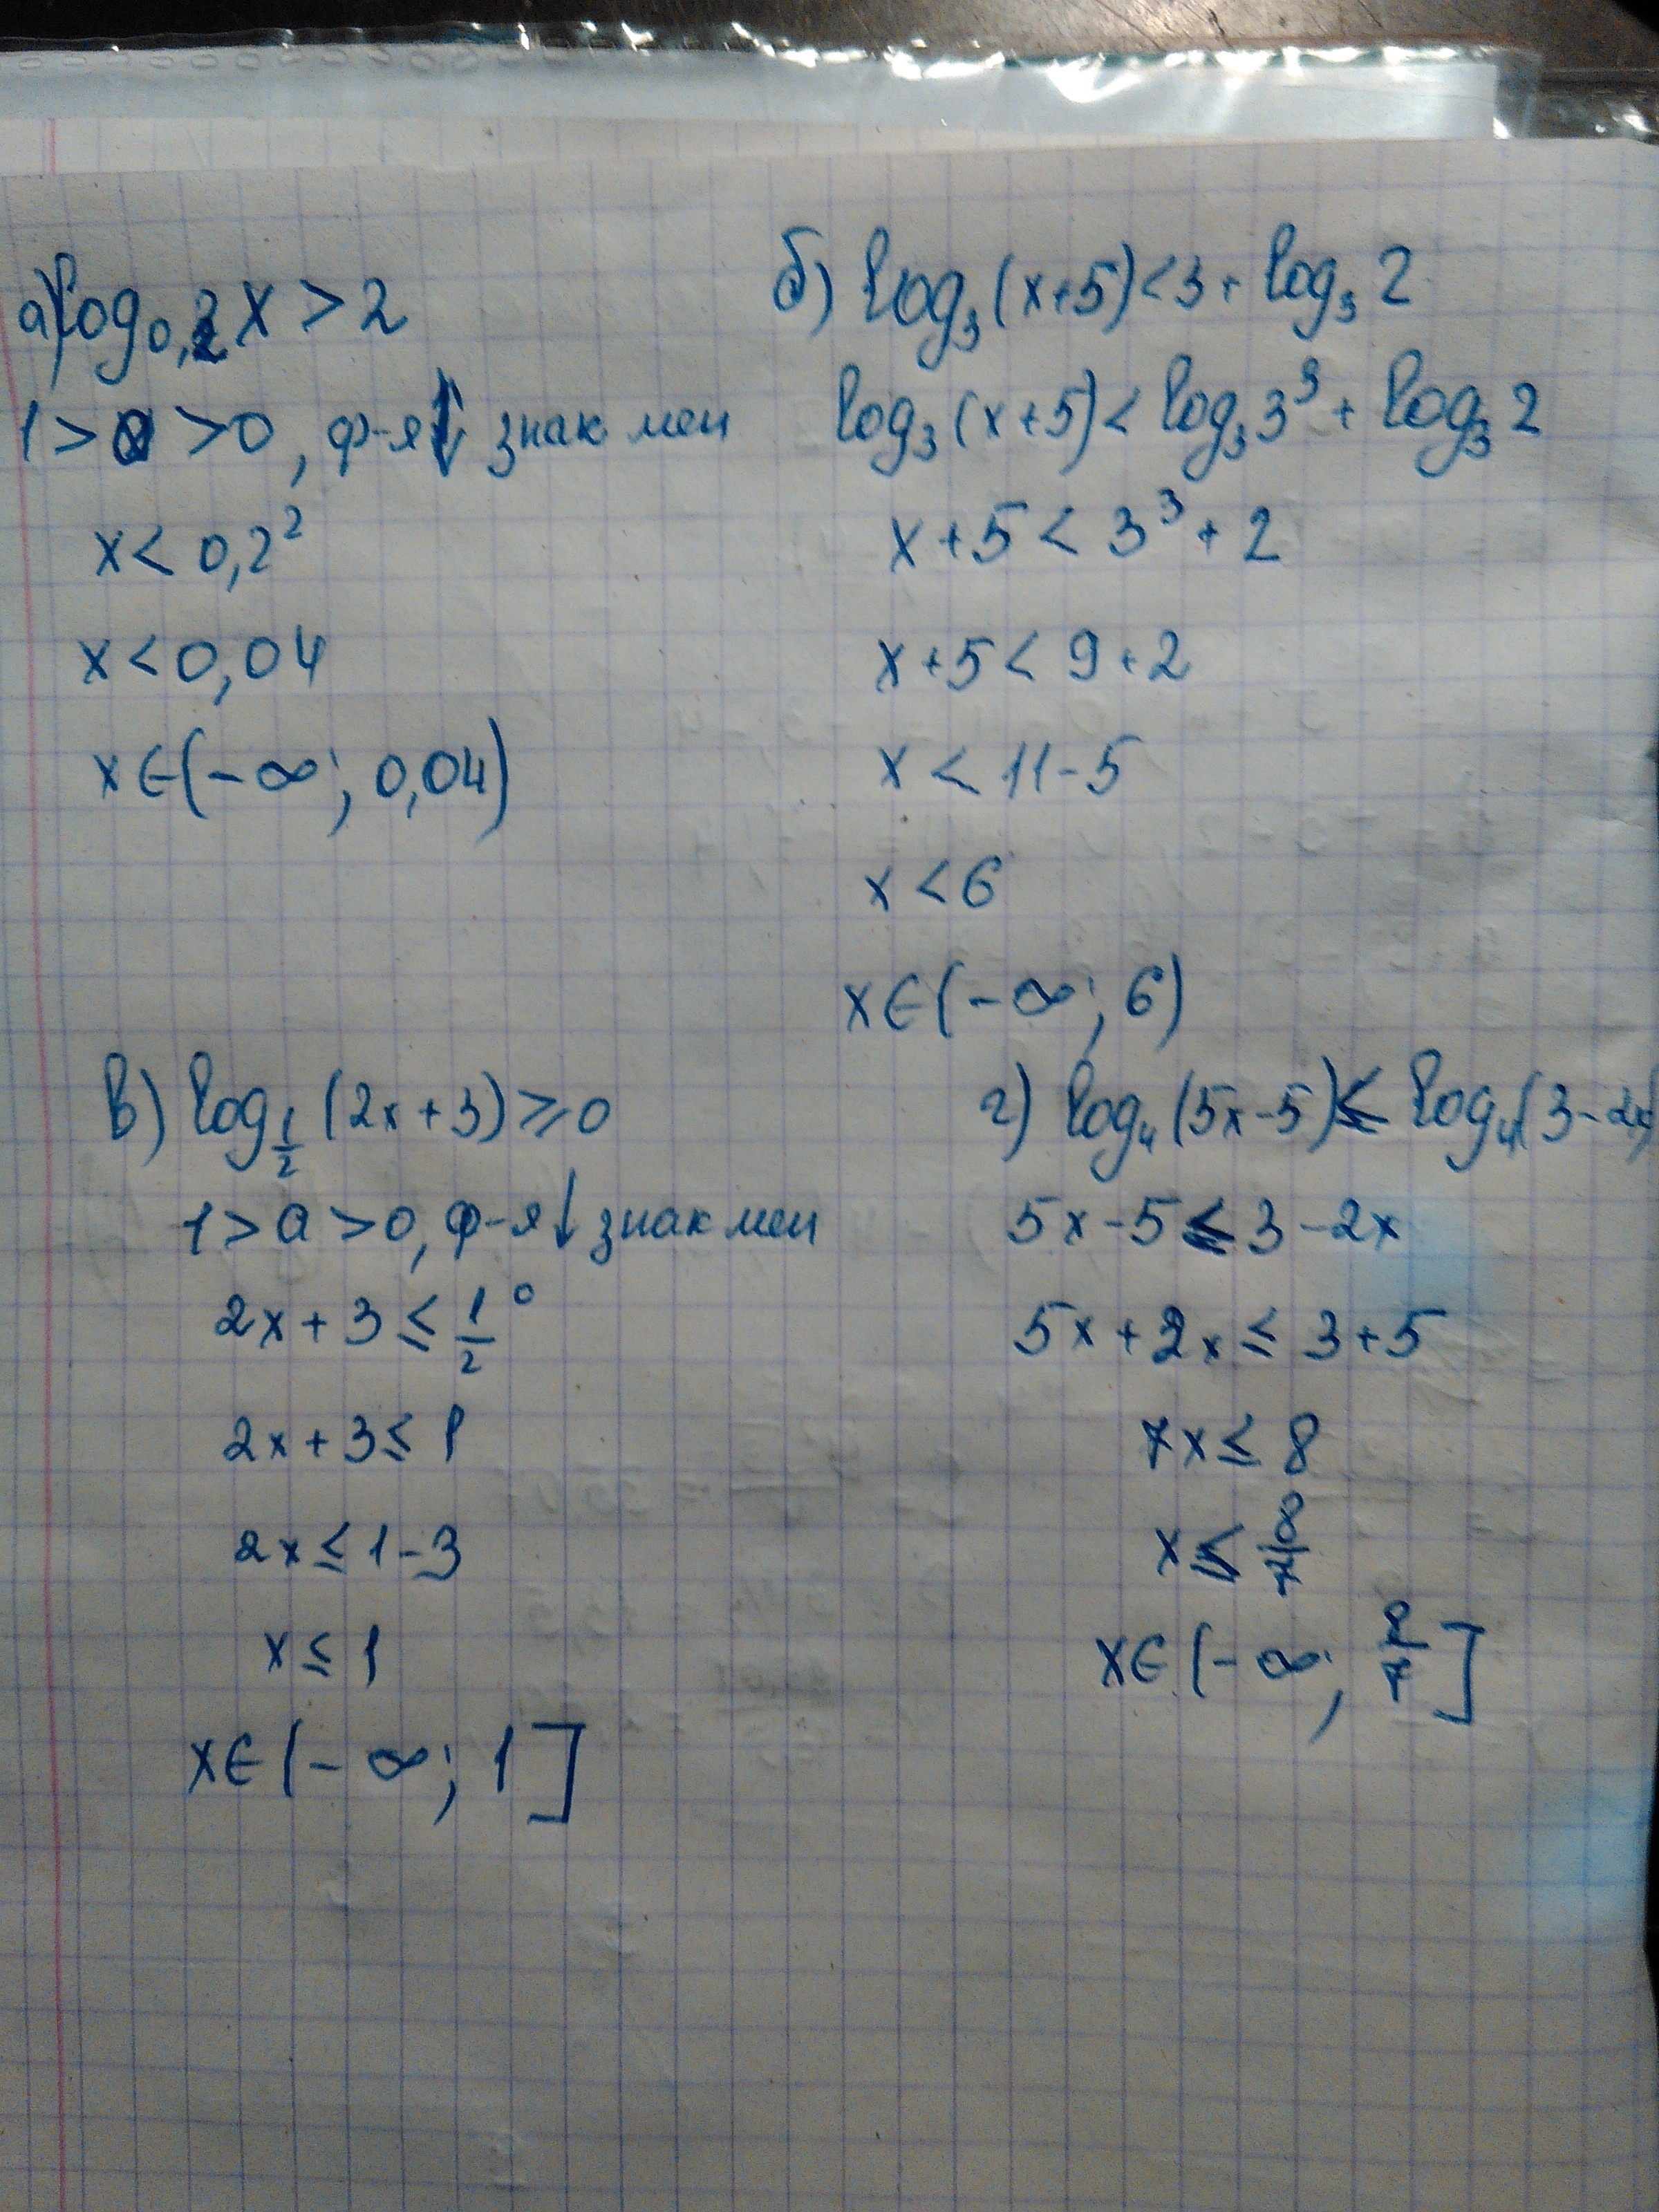 а) log₀,₂ x > 2
1 > a > 0, ф-я↓ знак мен
x < 0,2²
x < 0,04
x ∈ (-∞; 0,04)
б) log₃(x+5) < 3 + log₃ 2
log₃(x+5) < log₃ 3³ + log₃ 2
x + 5 < 3³ + 2
x + 5 < 9 + 2
x < 11 - 5
x < 6
x ∈ (-∞; 6)
в) log_{1/2} (2x+3) ≥ 0
1 > a > 0, ф-я↓ знак мен
2x + 3 ≤ 1/2⁰
2x + 3 ≤ 1
2x ≤ 1 - 3
x ≤ 1
x ∈ (-∞; 1]
г) log₄(5x-5) ≤ log₄(3-2x)
5x - 5 ≤ 3 - 2x
5x + 2x ≤ 3 + 5
7x ≤ 8
x ≤ 8/7
x ∈ (-∞; 8/7]